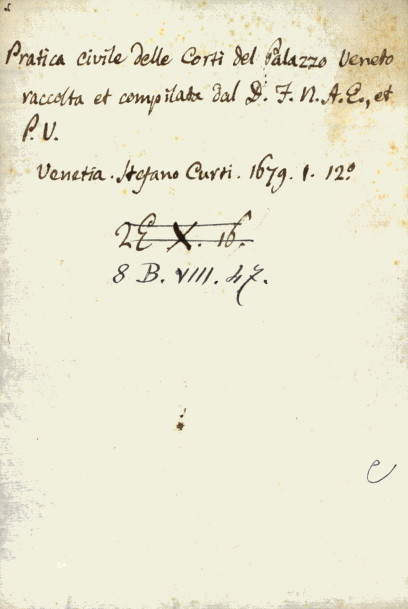 Pratica civile delle Corti del Palazzo Veneto
raccolta et compilata dal D. F. N. A. E., et
P. V.
Venetia. Stefano Curti. 1679. 1. 12º
2E X. 16.
8 B. VIII. 47.